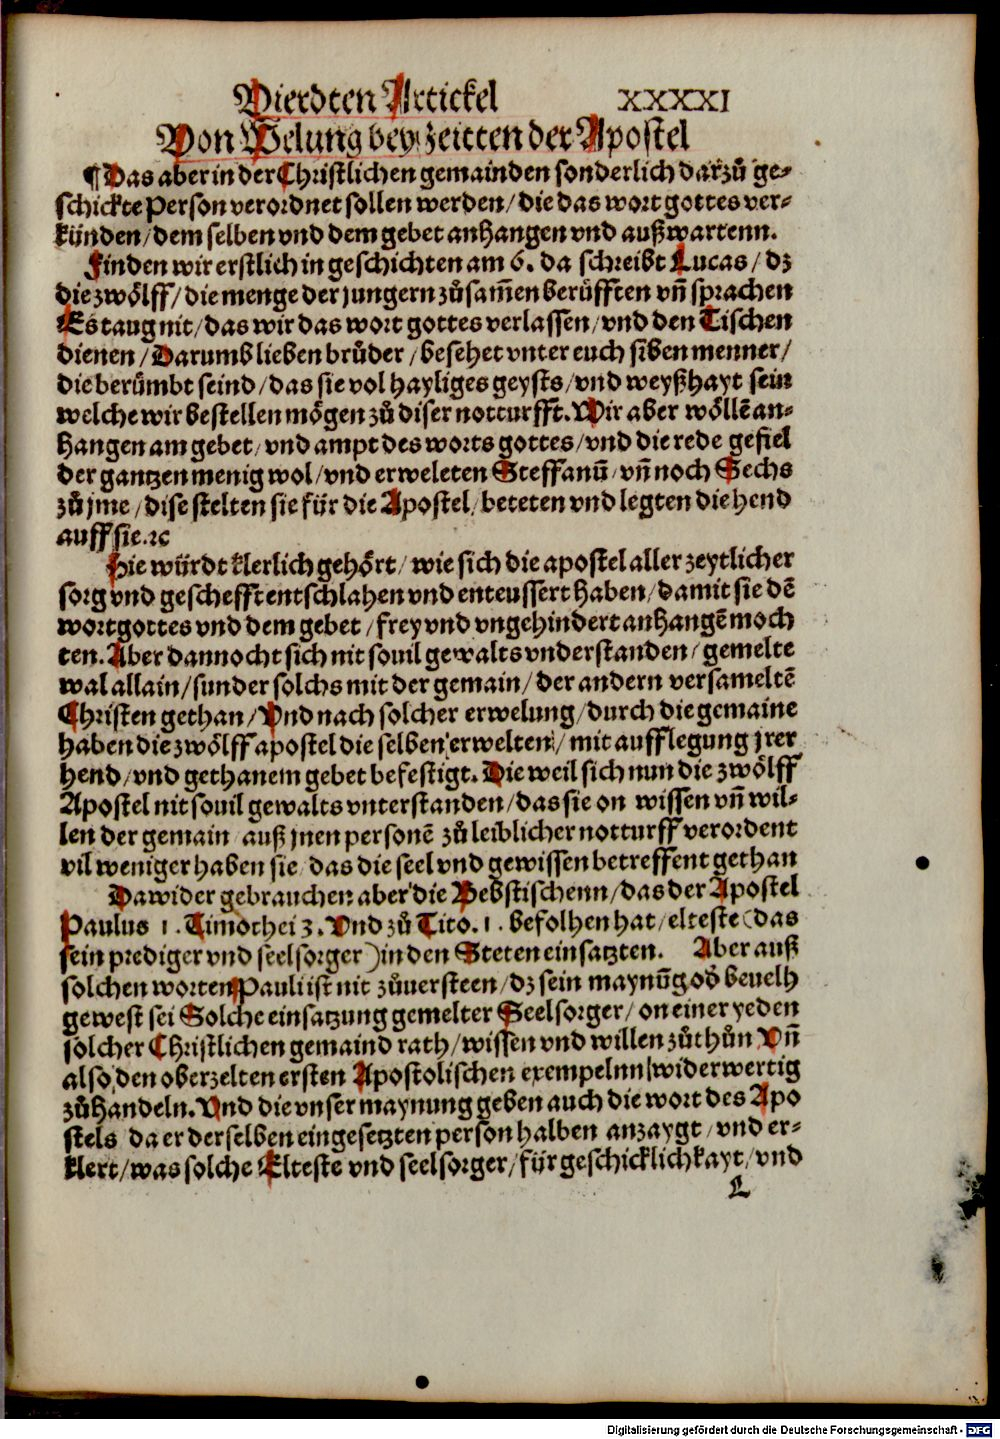 Vierdten Artickel XXXXI
Von Welung bey zeitten der Apostel
¶ Das aber in der Christlichen gemainden sonderlich darzů ge-
schickte Person verordnet sollen werden / die das wort gottes ver-
künden / dem selben vnd dem gebet anhangen vnd außwartenn.
Finden wir erstlich in geschichten am 6. da schreibt Lucas / dz
die zwölff / die menge der jungern zůsam̃en berůfften vñ sprachen
Es taug nit / das wir das wort gottes verlassen / vnd den Tischen
dienen / Darumb lieben brůder / besehet vnter euch siben menner /
die berůmbt seind / das sie vol hayliges geysts / vnd weyßhayt sein
welche wir bestellen mögen zů diser notturfft. Wir aber wöllẽ an-
hangen am gebet / vnd ampt des worts gottes / vnd die rede gefiel
der gantzen menig wol / vnd erweleten Steffanũ / vñ noch Sechs
zů jme / dise stelten sie für die Apostel / beteten vnd legten die hend
auff sie. ꝛc
Hie würdt klerlich gehört / wie sich die apostel aller zeytlicher
sorg vnd geschefft entschlahen vnd enteussert haben / damit sie dẽ
wort gottes vnd dem gebet / frey vnd vngehindert anhangẽ moch
ten. Aber dannocht sich nit souil gewalts vnderstanden / gemelte
wal allain / sunder solchs mit der gemain / der andern versameltẽ
Christen gethan / Vnd nach solcher erwelung / durch die gemaine
haben die zwölff apostel die selben erwelten / mit aufflegung jrer
hend / vnd gethanem gebet befestigt. Die weil sich nun die zwölff
Apostel nit souil gewalts vnterstanden / das sie on wissen vñ wil-
len der gemain / auß jnen personẽ zů leiblicher notturff verordent
vil weniger haben sie / das die seel vnd gewissen betreffent gethan
Dawider gebrauchen aber die Bebstischenn / das der Apostel
Paulus 1. Timothei 3. Vnd zů Tito. 1. befolhen hat / elteste (das
sein prediger vnd seelsorger) in den Steten einsatzten. Aber auß
solchen worten Pauli ist nit zůuersteen / dz sein maynũg oď beuelh
gewest sei Solche einsatzung gemelter Seelsorger / on einer yeden
solcher Christlichen gemaind rath / wissen vnd willen zůthůn Vñ
also den oberzelten ersten Apostolischen exempelnn widerwertig
zůhandeln. Vnd die vnser maynung geben auch die wort des Apo
stels da er der selben eingesetzten person halben anzaygt / vnd er-
klert / was solche Elteste vnd seelsorger / für geschicklichkayt / vnd
L
Digitalisierung gefördert durch die Deutsche Forschungsgemeinschaft - DFG